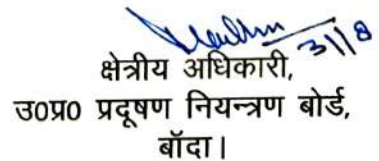 31/8
क्षेत्रीय अधिकारी,
उ0प्र0 प्रदूषण नियन्त्रण बोर्ड,
बॉदा।